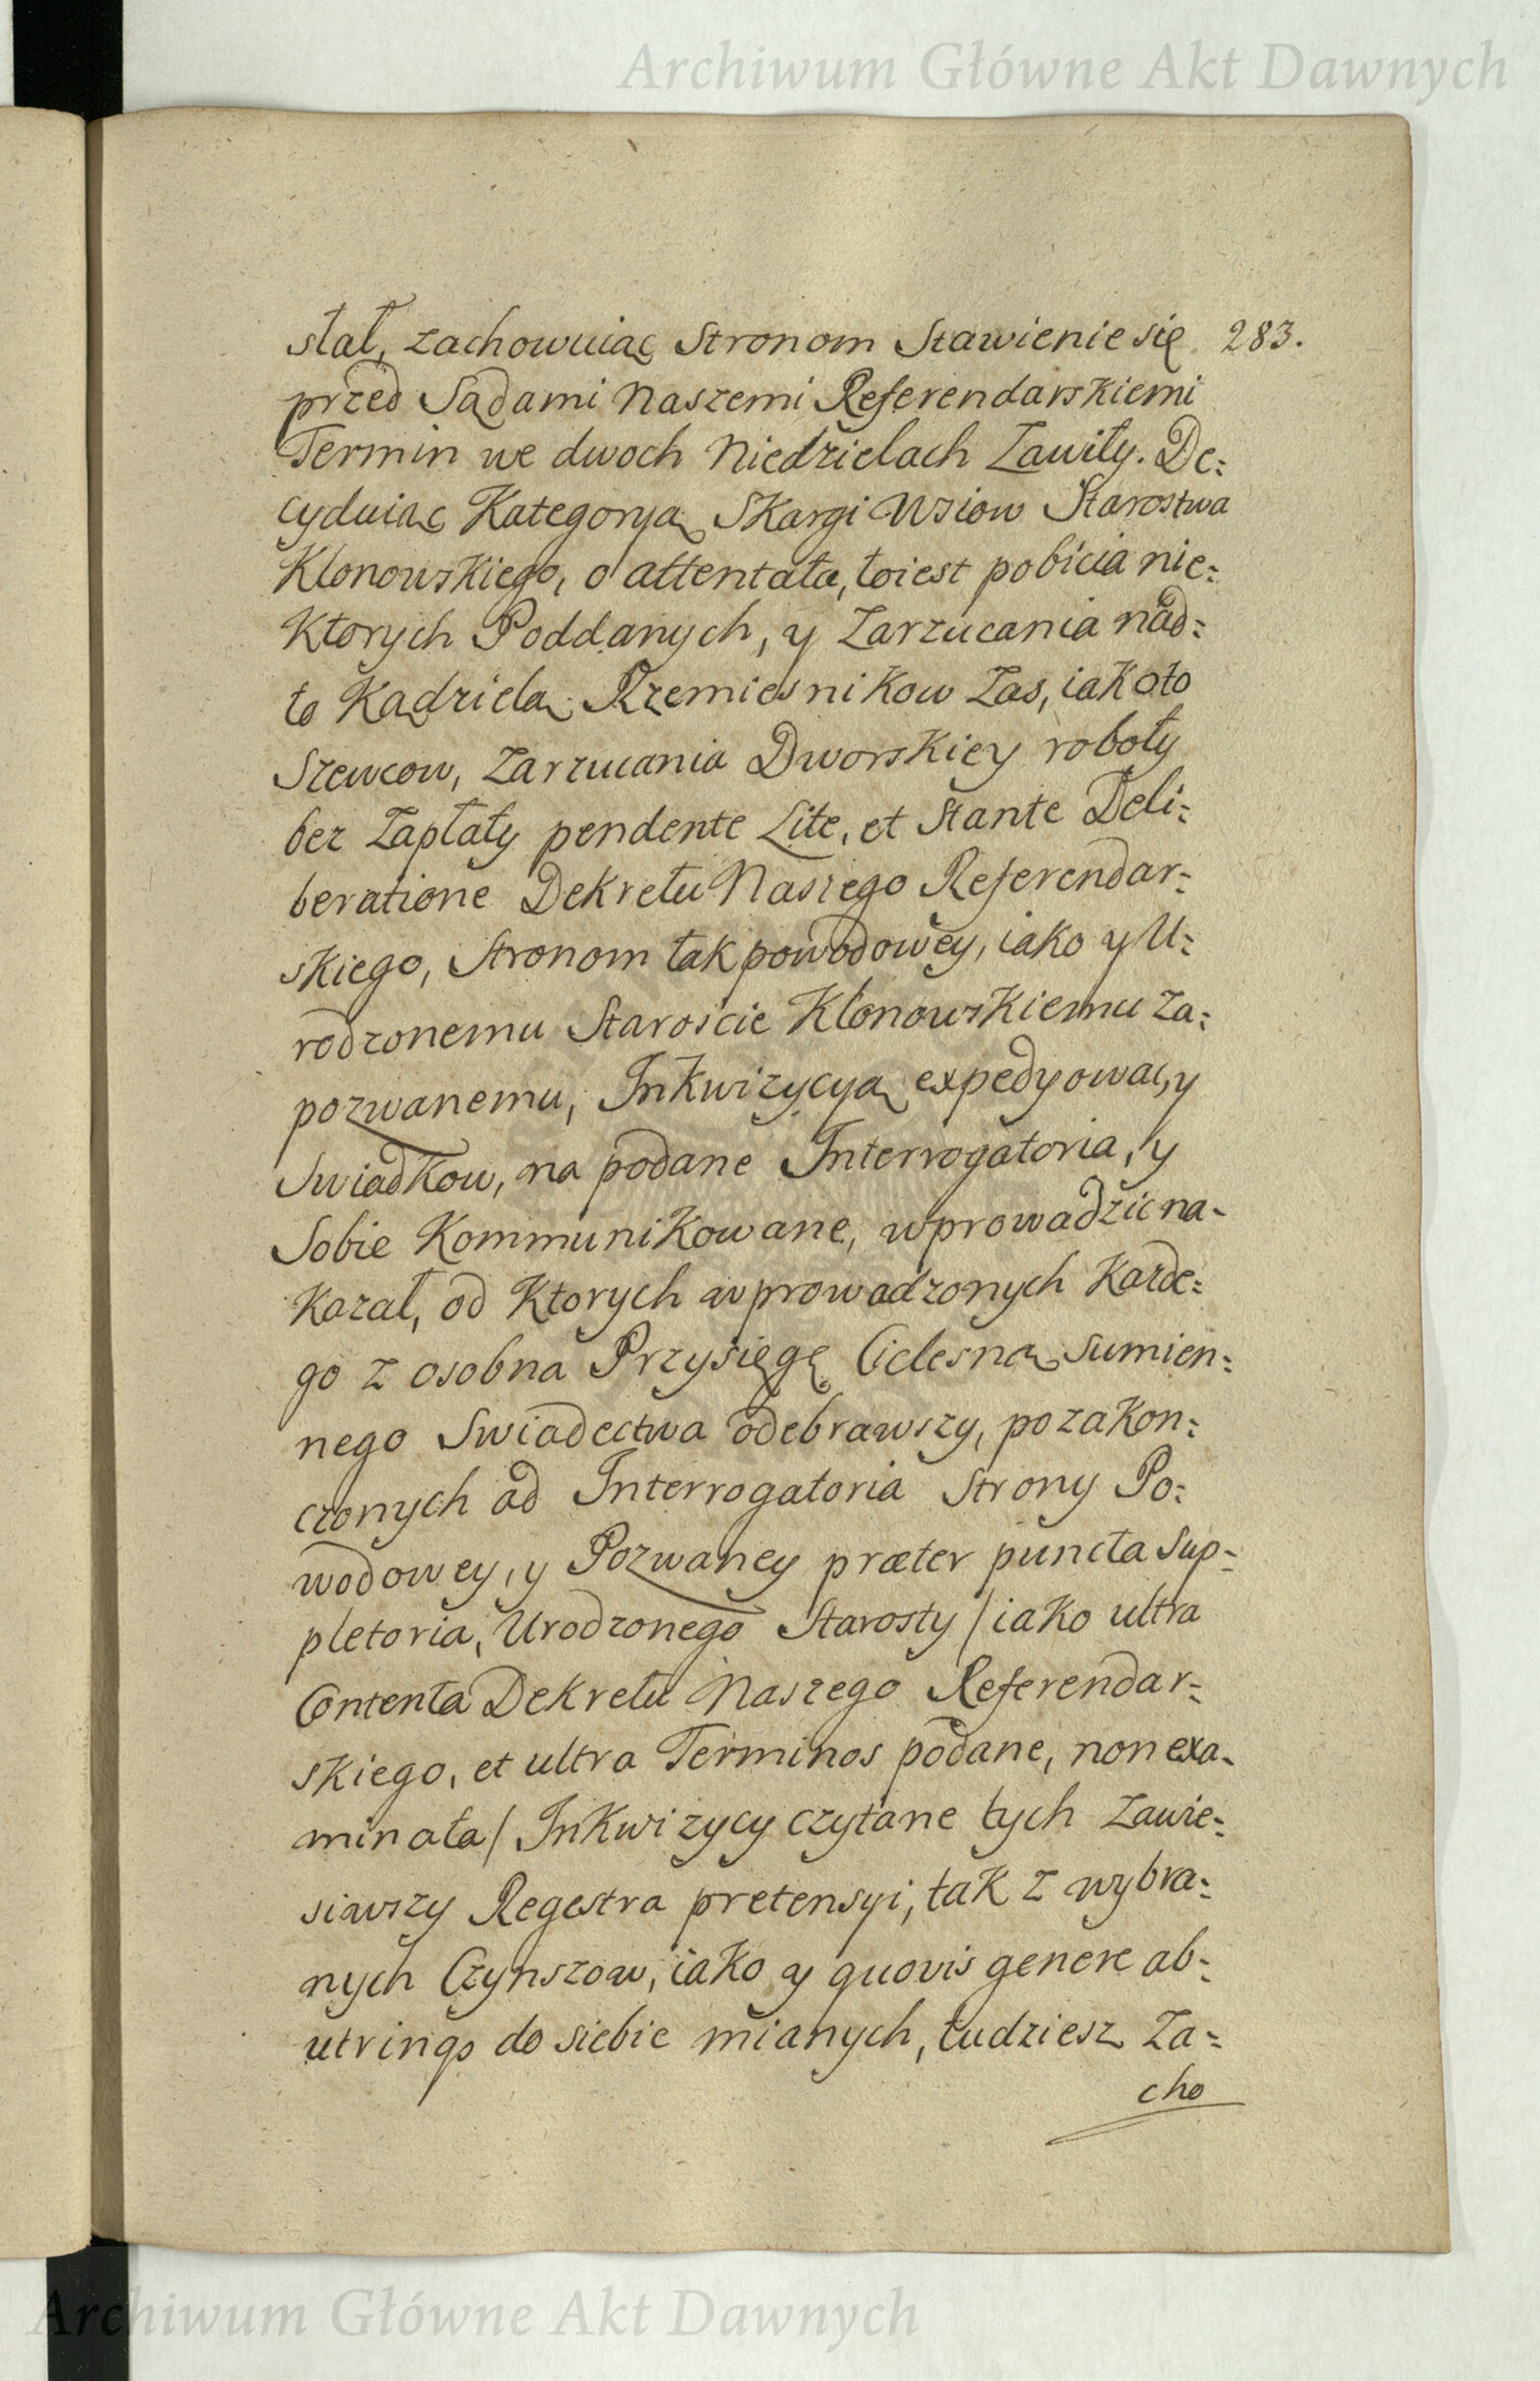 Archiwum Główne Akt Dawnych
stał, zachowuiąc Stronom Stawienie się 283.
przed Sądami Naszemi Referendarskiemi
Termin we dwoch Niedzielach Zawiły. De:
cyduiąc Kategoryą Skargi Wsiow Starostwa
Klonowskiego, o attentata, toiest pobicia nie:
ktorych Poddanych, y Zarzucania nad:
to Kądzielą. Rzemiesnikow Zas, iakoto
Szewcow, Zarzucania Dworskiey roboty
bez Zapłaty pendente Lite, et Stante Deli:
beratione Dekretu Naszego Referendar:
skiego, Stronom tak powodowey, iako y U:
rodzonemu Staroscie Klonowskiemu za:
pozwanemu, Inkwizycyą expedyowac, y
Swiadkow, na podane Interrogatoria, y
Sobie Kommunikowane, wprowadzic na-
kazał, od Ktorych wprowadzonych Kazde:
go z osobna Przysięgę Cielesną sumien:
nego Swiadectwa odebrawszy, po zakon:
czonych ad Interrogatoria Strony Po:
wodowey, y Pozwaney præter puncta Sup-
pletoria, Urodzonego Starosty / iako ultra
Contenta Dekretu Naszego Referendar:
skiego, et ultra Terminos podane, non exa-
minata / Inkwizycy czytane tych Zawie:
siwszy Regestra pretensyi, tak z wybra:
nych Czynszow, iako y quovis genere ab:
utrinqs do siebie mianych, tudziesz Za:
cho
Archiwum Główne Akt Dawnych